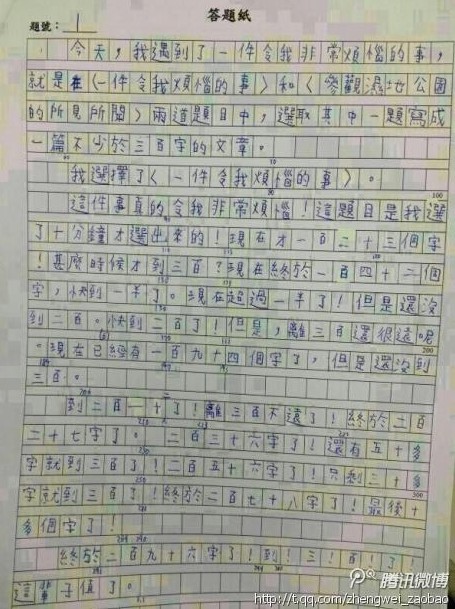 答題紙
題號：1
今天，我遇到了一件令我非常煩惱的事，
就是在〈一件令我煩惱的事〉和〈參觀濕地公園
的所見所聞〉兩道題目中，選取其中一題寫成
一篇不少於三百字的文章。
我選擇了〈一件令我煩惱的事〉。
這件事真的令我非常煩惱！這題目是我選
了十分鐘才選出來的！現在才一百二十三個字
！甚麼時候才到三百？現在終於一百四十二個
字，快到一半了。現在超過一半了！但是還沒
到二百。快到二百了！但是，離三百還很遠呢
。現在已經有一百九十四個字了，但是還沒到
三百。
到二百一十了！離三百不遠了！終於二百
二十七字了。二百三十六字了！還有五十多
字就到三百了！二百五十六字了！只剩三十多
字就到三百了！終於二百七十八字了！最後十
多個字了！
終於二百九十六字了！到！三！百！了！
這輩子值了。
腾讯微博
http://t.qq.com/zhengwei_zaobao